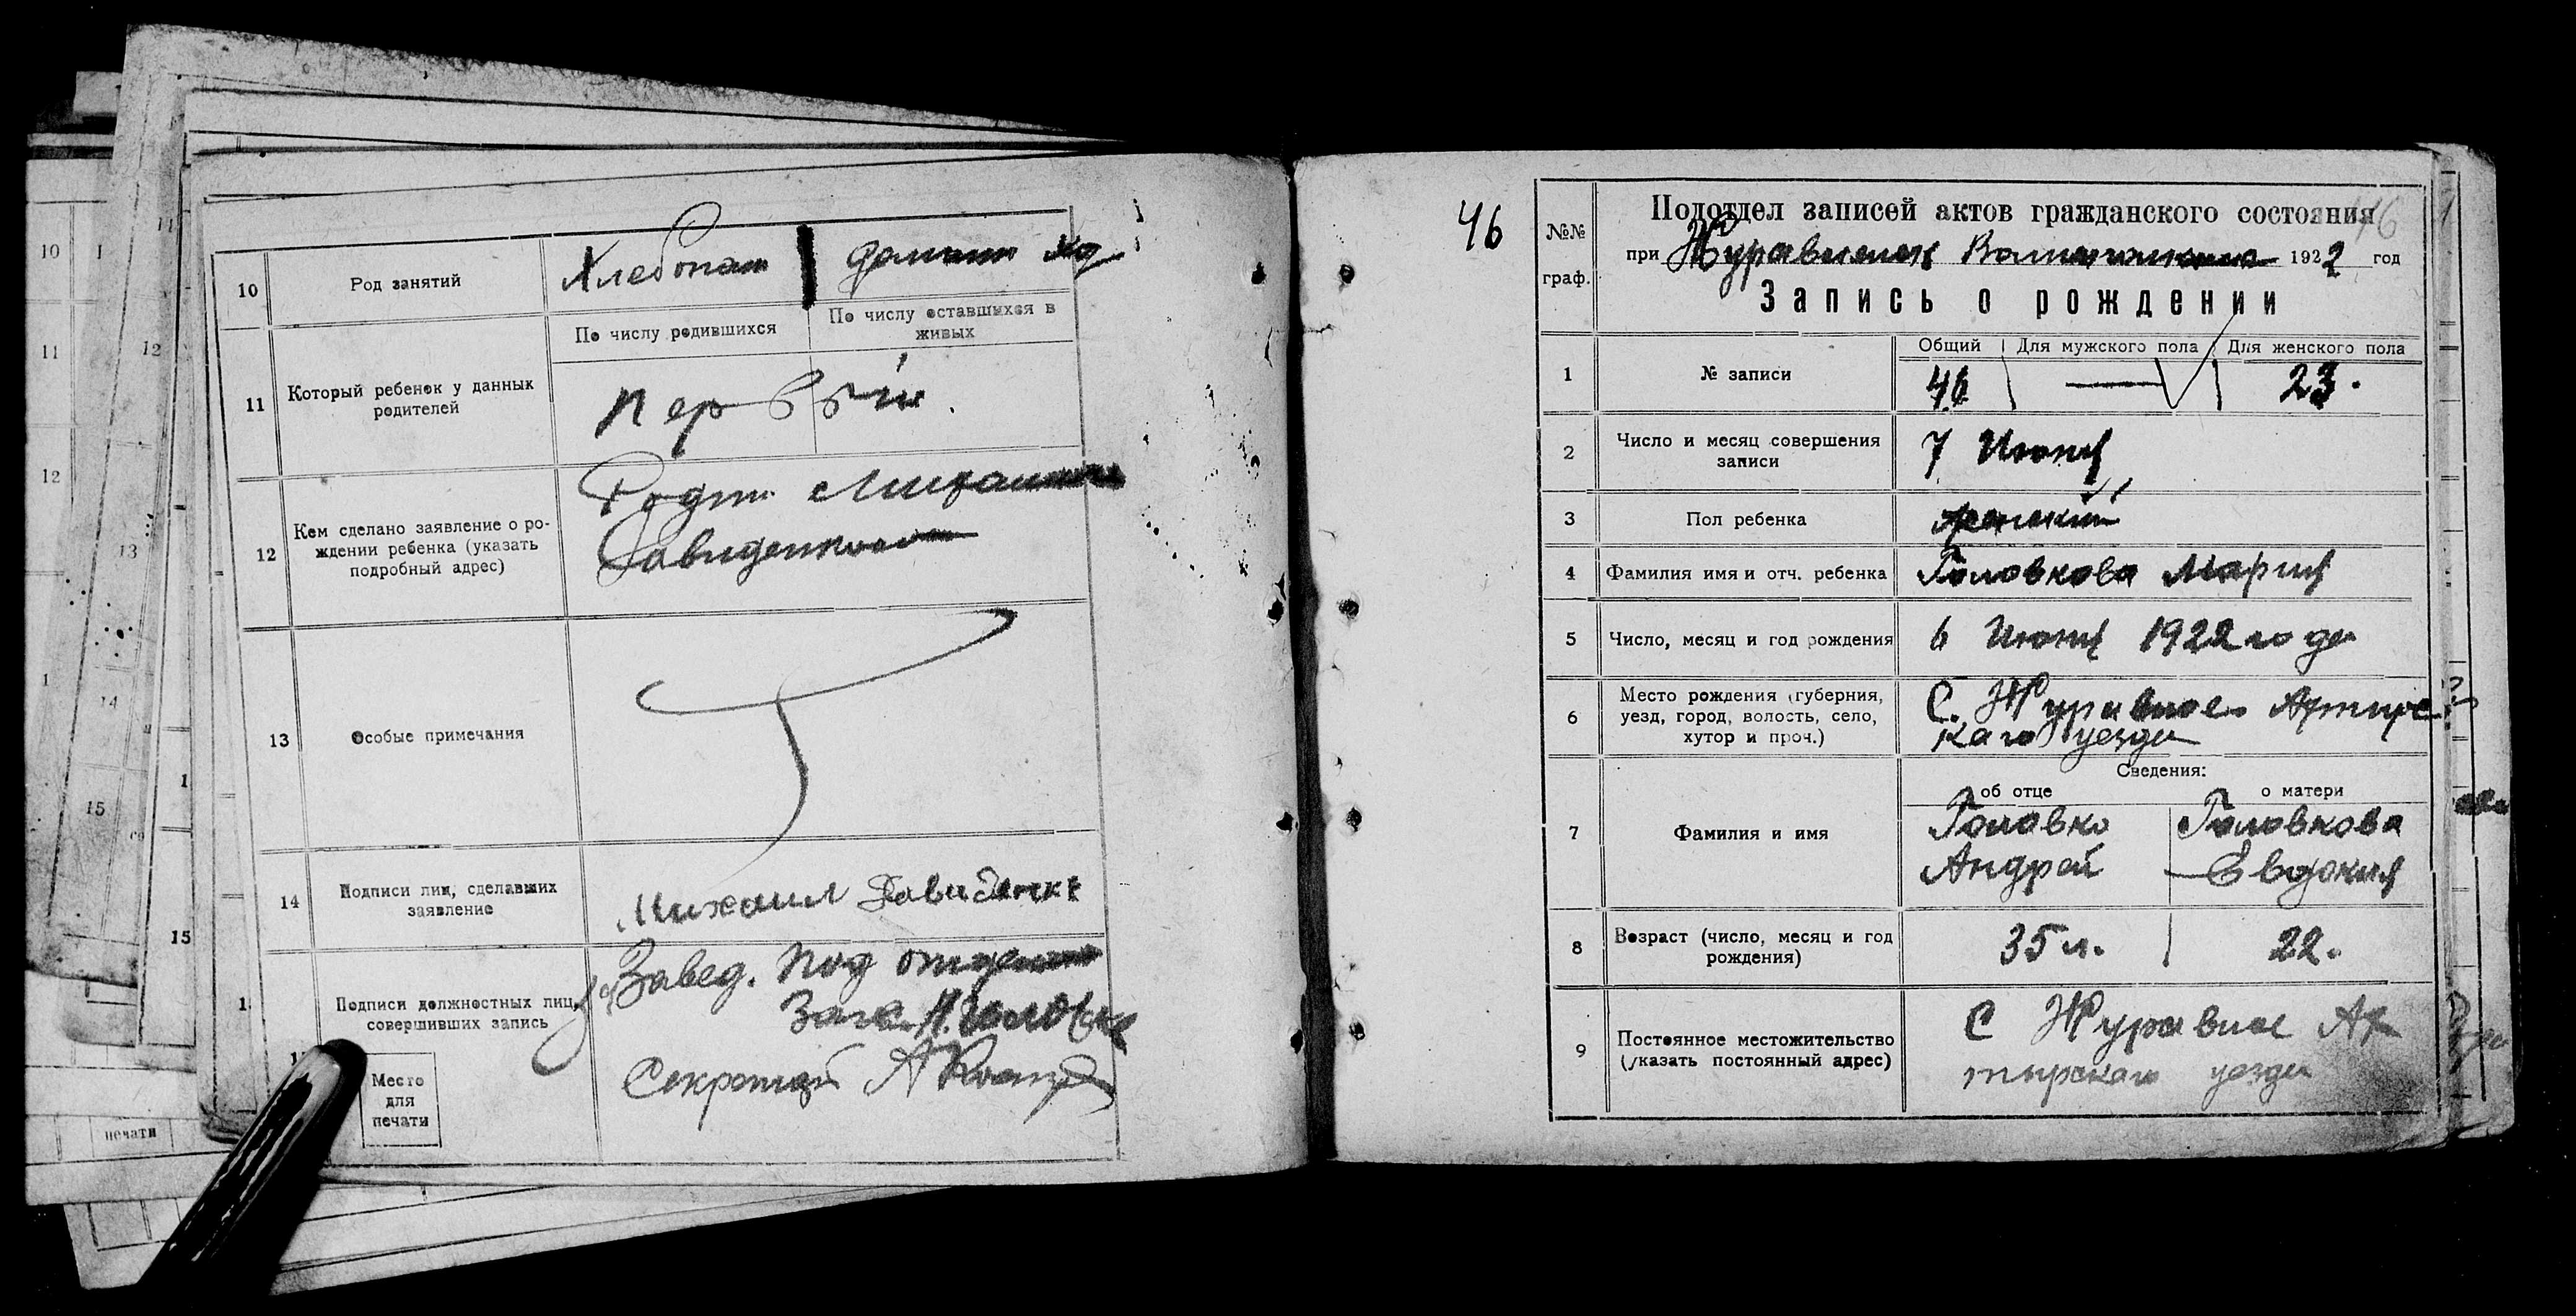 10
Род занятий
Хлебопаш
домаш хоз
11
Который ребенок у данных
родителей
По числу родившихся
По числу оставшихся в
живых
первый
12
Кем сделано заявление о ро-
ждении ребенка (указать
подробный адрес)
Родит. Михаилом
Давиденковым
13
Особые примечания
14
Подписи лиц, сделавших
заявление
Михаил Давиденко
Подписи должностных лиц,
совершивших запись
Завед. Под отделом
Загс Головко
Секретарь
Место
для
печати
10
11
12
11
12
13
14
15
15
печати
46
№№
граф.
Подотдел записей актов гражданского состояния
46
при Журавненск Волисполкоме 1922 год
Запись о рождении
1
№ записи
Общий
Для мужского пола
Для женского пола
46
—
23.
2
Число и месяц совершения
записи
7 Июня
3
Пол ребенка
женский
4
Фамилия имя и отч. ребенка
Головкова Мария
5
Число, месяц и год рождения
6 Июня 1922 года
6
Место рождения (губерния,
уезд, город, волость, село,
хутор и проч.)
С. Журавное Ахтырс
каго уезда
7
Фамилия и имя
Сведения:
об отце
о матери
Головко
Андрей
Головкова
Евдокия
8
Возраст (число, месяц и год
рождения)
35 л.
22.
9
Постоянное местожительство
(указать постоянный адрес)
С Журавное Ах
тырскаго уезда